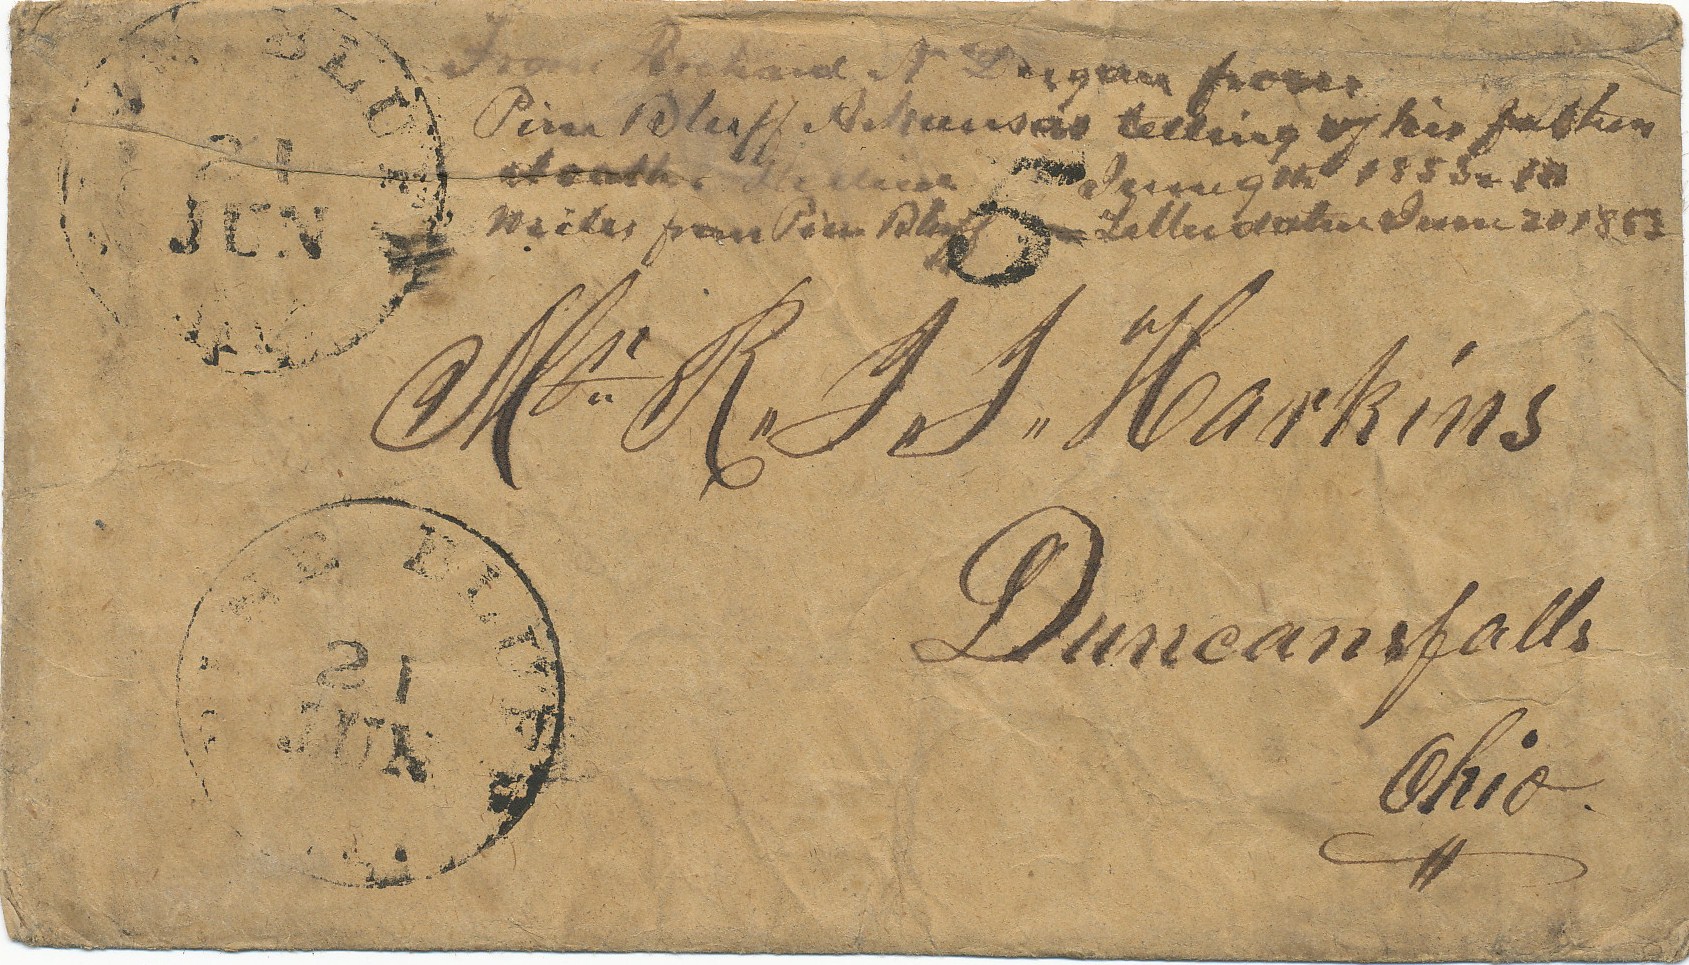 PINE BLUFF
21
JUN
From Richard N Dugan from
Pine Bluff Arkansas telling of his father
death June 9th 1853
writes from Pine Bluff Letter date June 20 1853
5
Mr. R. J. J. Harkins
Duncansfalls
Ohio.
PINE BLUFF
21
JUN